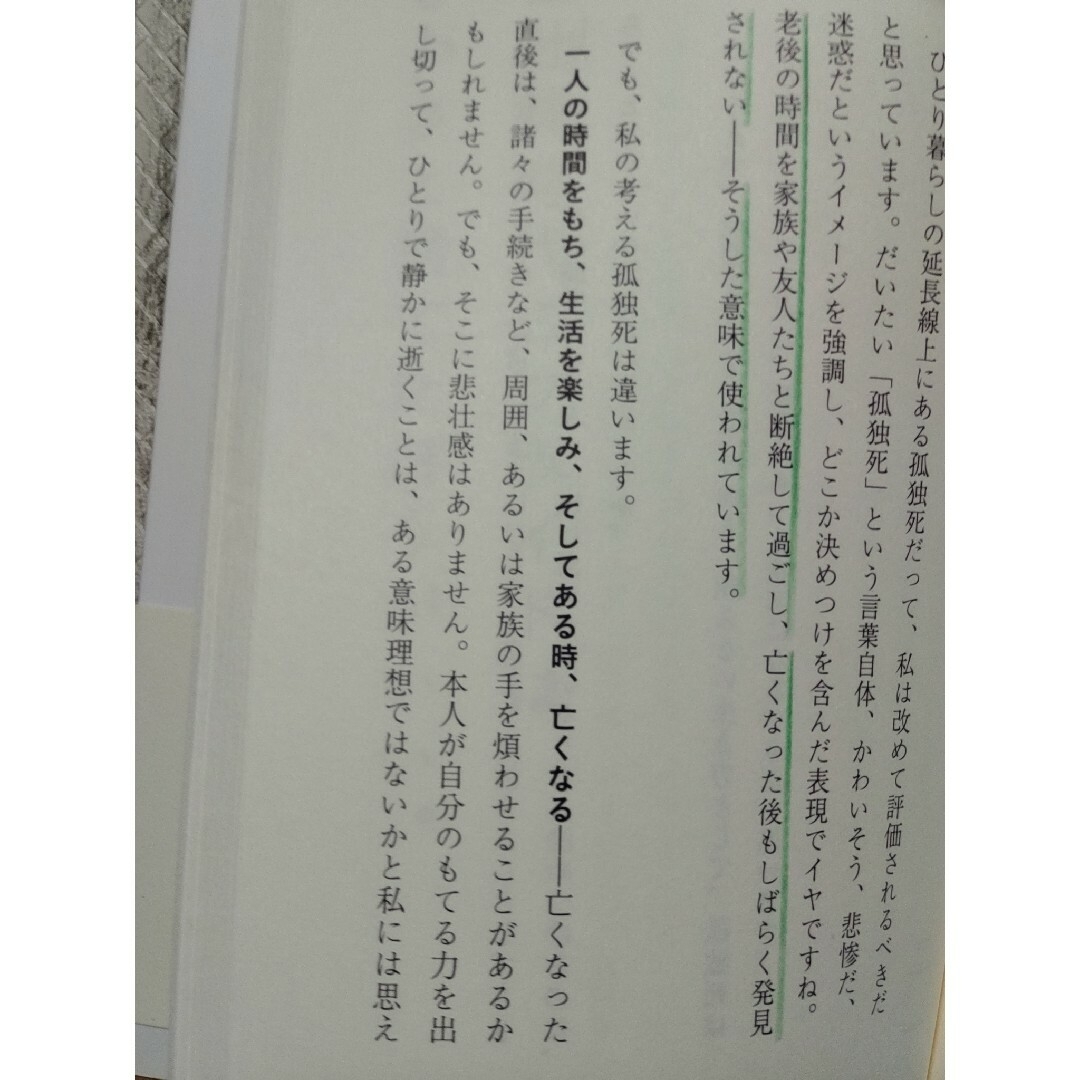 ひとり暮らしの延長線上にある孤独死だって、私は改めて評価されるべきだ
と思っています。だいたい「孤独死」という言葉自体、かわいそう、悲惨だ、
迷惑だというイメージを強調し、どこか決めつけを含んだ表現でイヤですね。
老後の時間を家族や友人たちと断絶して過ごし、亡くなった後もしばらく発見
されない――そうした意味で使われています。
でも、私の考える孤独死は違います。
一人の時間をもち、生活を楽しみ、そしてある時、亡くなる――亡くなった
直後は、諸々の手続きなど、周囲、あるいは家族の手を煩わせることがあるか
もしれません。でも、そこに悲壮感はありません。本人が自分のもてる力を出
し切って、ひとりで静かに逝くことは、ある意味理想ではないかと私には思え